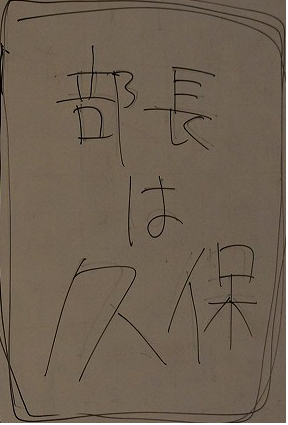 部長
は
久保